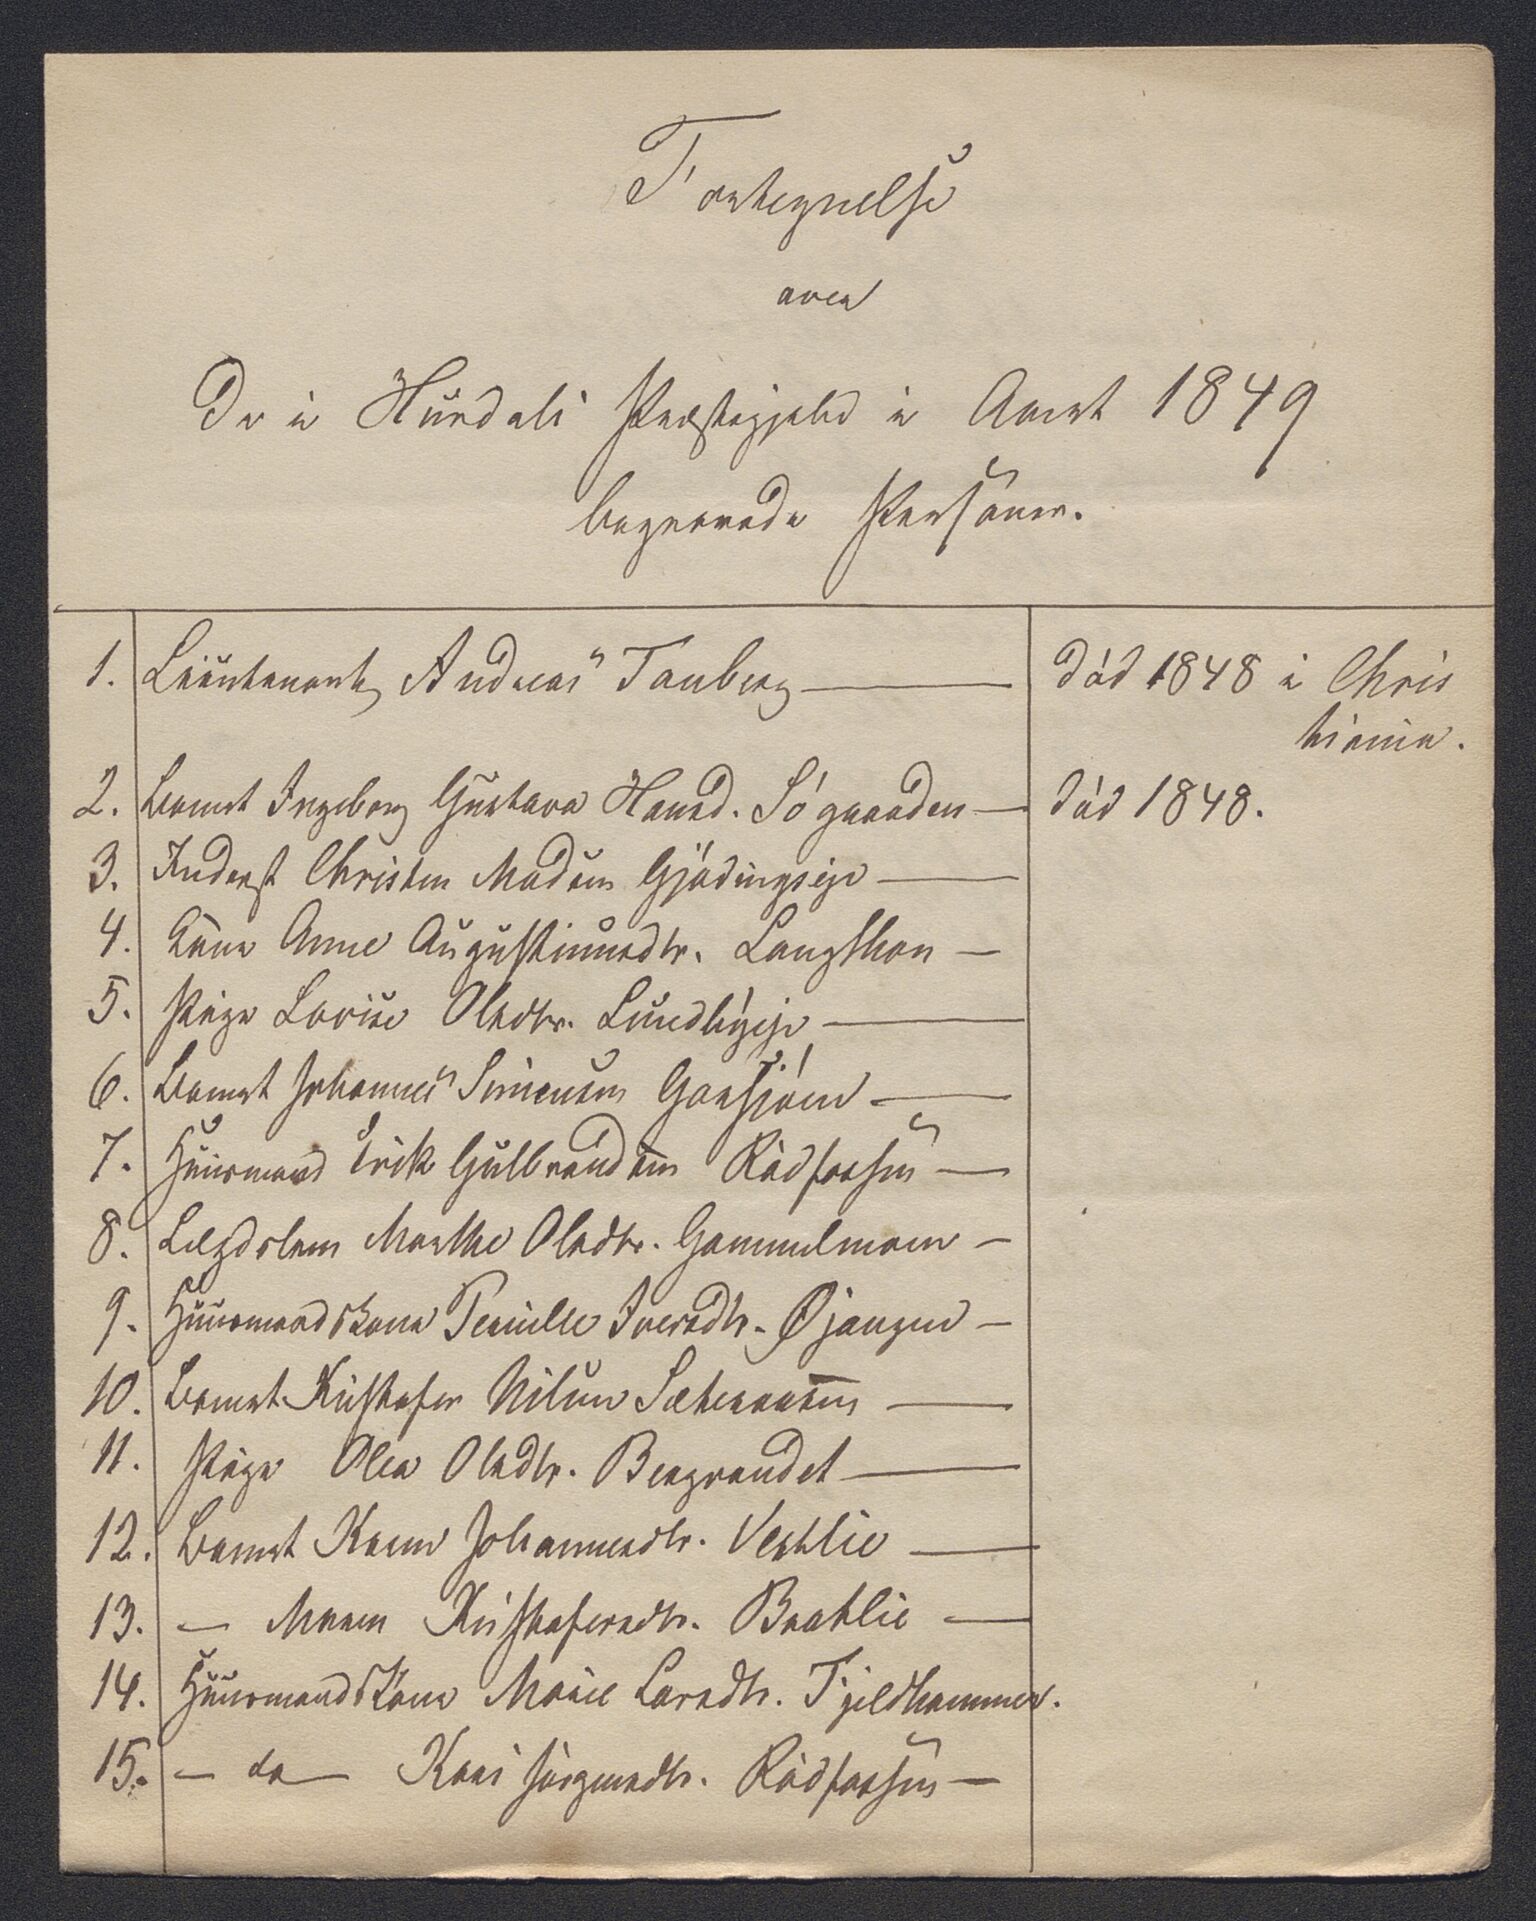 Fortegnelse
over
De i Hurdals Præstegjeld i Aaret 1849
begravede Personer.
1. Lieutenant Andreas Tauberg — död 1848 i Chris
tiania.
2. Barnet Ingeborg Gustava Hansd. Sögaarden — död 1848.
3. Inderst Christen Madsen Gjödingseje —
4. Kone Anne Augustinusdtr. Langthon —
5. Pige Lovise Olsdtr. Lundbyeje —
6. Barnet Johannes Simensen Garsjöen —
7. Huusmand Erik Gulbrandsen Rödfossen —
8. Lægdslem Marthe Olsdtr. Gammelmoen —
9. Huusmandskone Pernille Iversdtr. Øjangen —
10. Barnet Kristofer Nilsen Sæteraasen —
11. Pige Olea Olsdtr. Bergrandet —
12. Barnet Karen Johannesdtr. Vestlie —
13. — Maren Kristofersdtr. Braatlie —
14. Huusmandskone Marie Larsdtr. Fjeldhammer.
15. — do — Kari Jörgensdtr. Rödfossen —